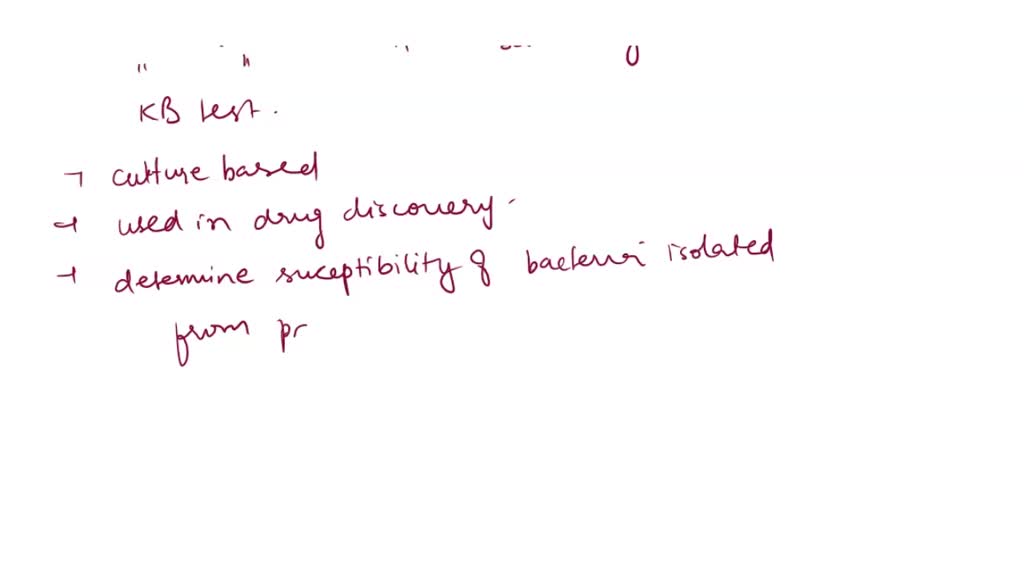 KB test.
culture based
used in drug discovery.
determine suceptibility of bacteria isolated
from pr